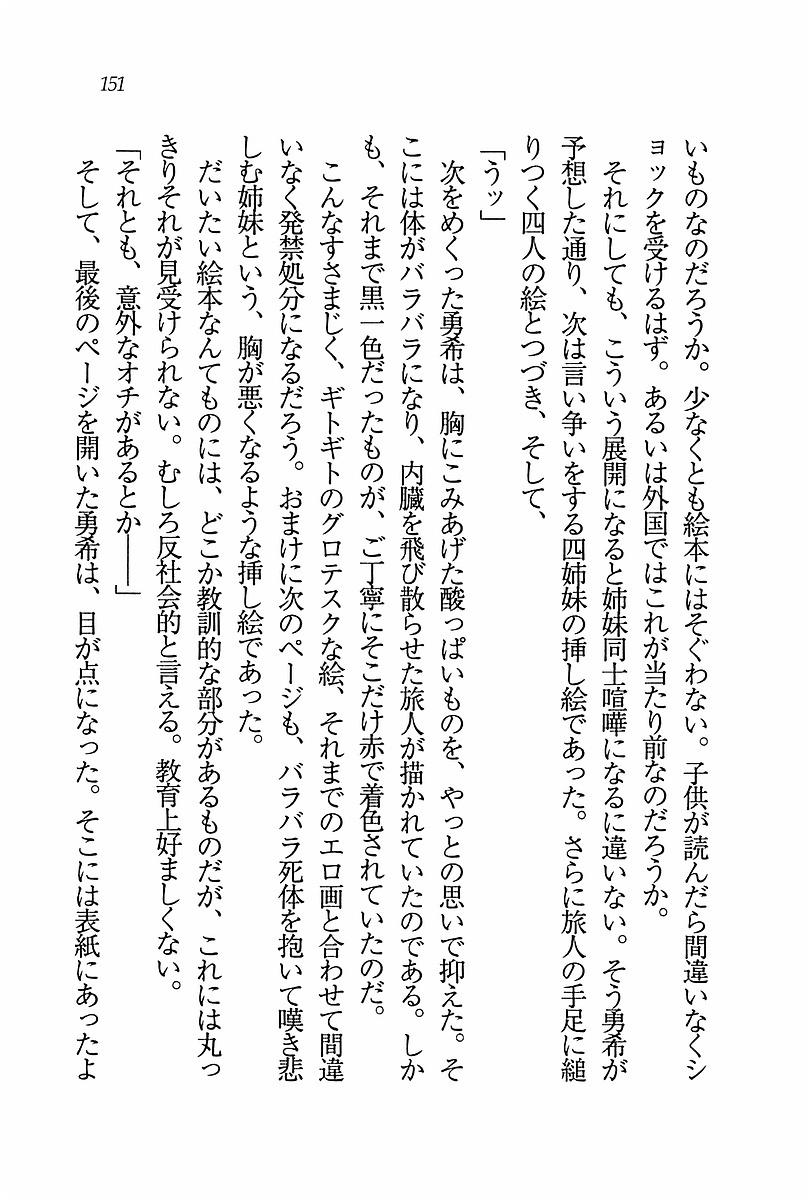 151
いものなのだろうか。少なくとも絵本にはそぐわない。子供が読んだら間違いなくシ
ョックを受けるはず。あるいは外国ではこれが当たり前なのだろうか。
それにしても、こういう展開になると姉妹同士喧嘩になるに違いない。そう勇希が
予想した通り、次は言い争いをする四姉妹の挿し絵であった。さらに旅人の手足に縋
りつく四人の絵とつづき、そして、
「うッ」
次をめくった勇希は、胸にこみあげた酸っぱいものを、やっとの思いで抑えた。そ
こには体がバラバラになり、内臓を飛び散らせた旅人が描かれていたのである。しか
も、それまで黒一色だったものが、ご丁寧にそこだけ赤で着色されていたのだ。
こんなすさまじく、ギトギトのグロテスクな絵、それまでのエロ画と合わせて間違
いなく発禁処分になるだろう。おまけに次のページも、バラバラ死体を抱いて嘆き悲
しむ姉妹という、胸が悪くなるような挿し絵であった。
だいたい絵本なんてものには、どこか教訓的な部分があるものだが、これには丸っ
きりそれが見受けられない。むしろ反社会的と言える。教育上好ましくない。
「それとも、意外なオチがあるとか――」
そして、最後のページを開いた勇希は、目が点になった。そこには表紙にあったよ